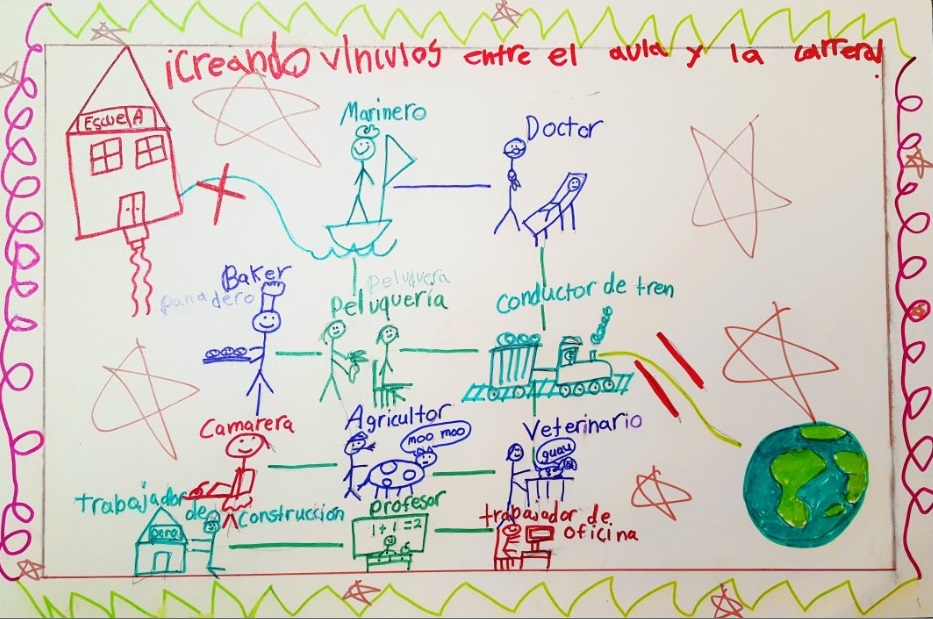 ¡Creando vínculos entre el aula y la carrera!
EscuelA
Marinero
Doctor
Baker
panadero
peluquera
Peluquería
conductor de tren
Camarera
Agricultor
moo moo
Veterinario
guau
trabajador de construccion
profesor
1+1=2
trabajador de
oficina